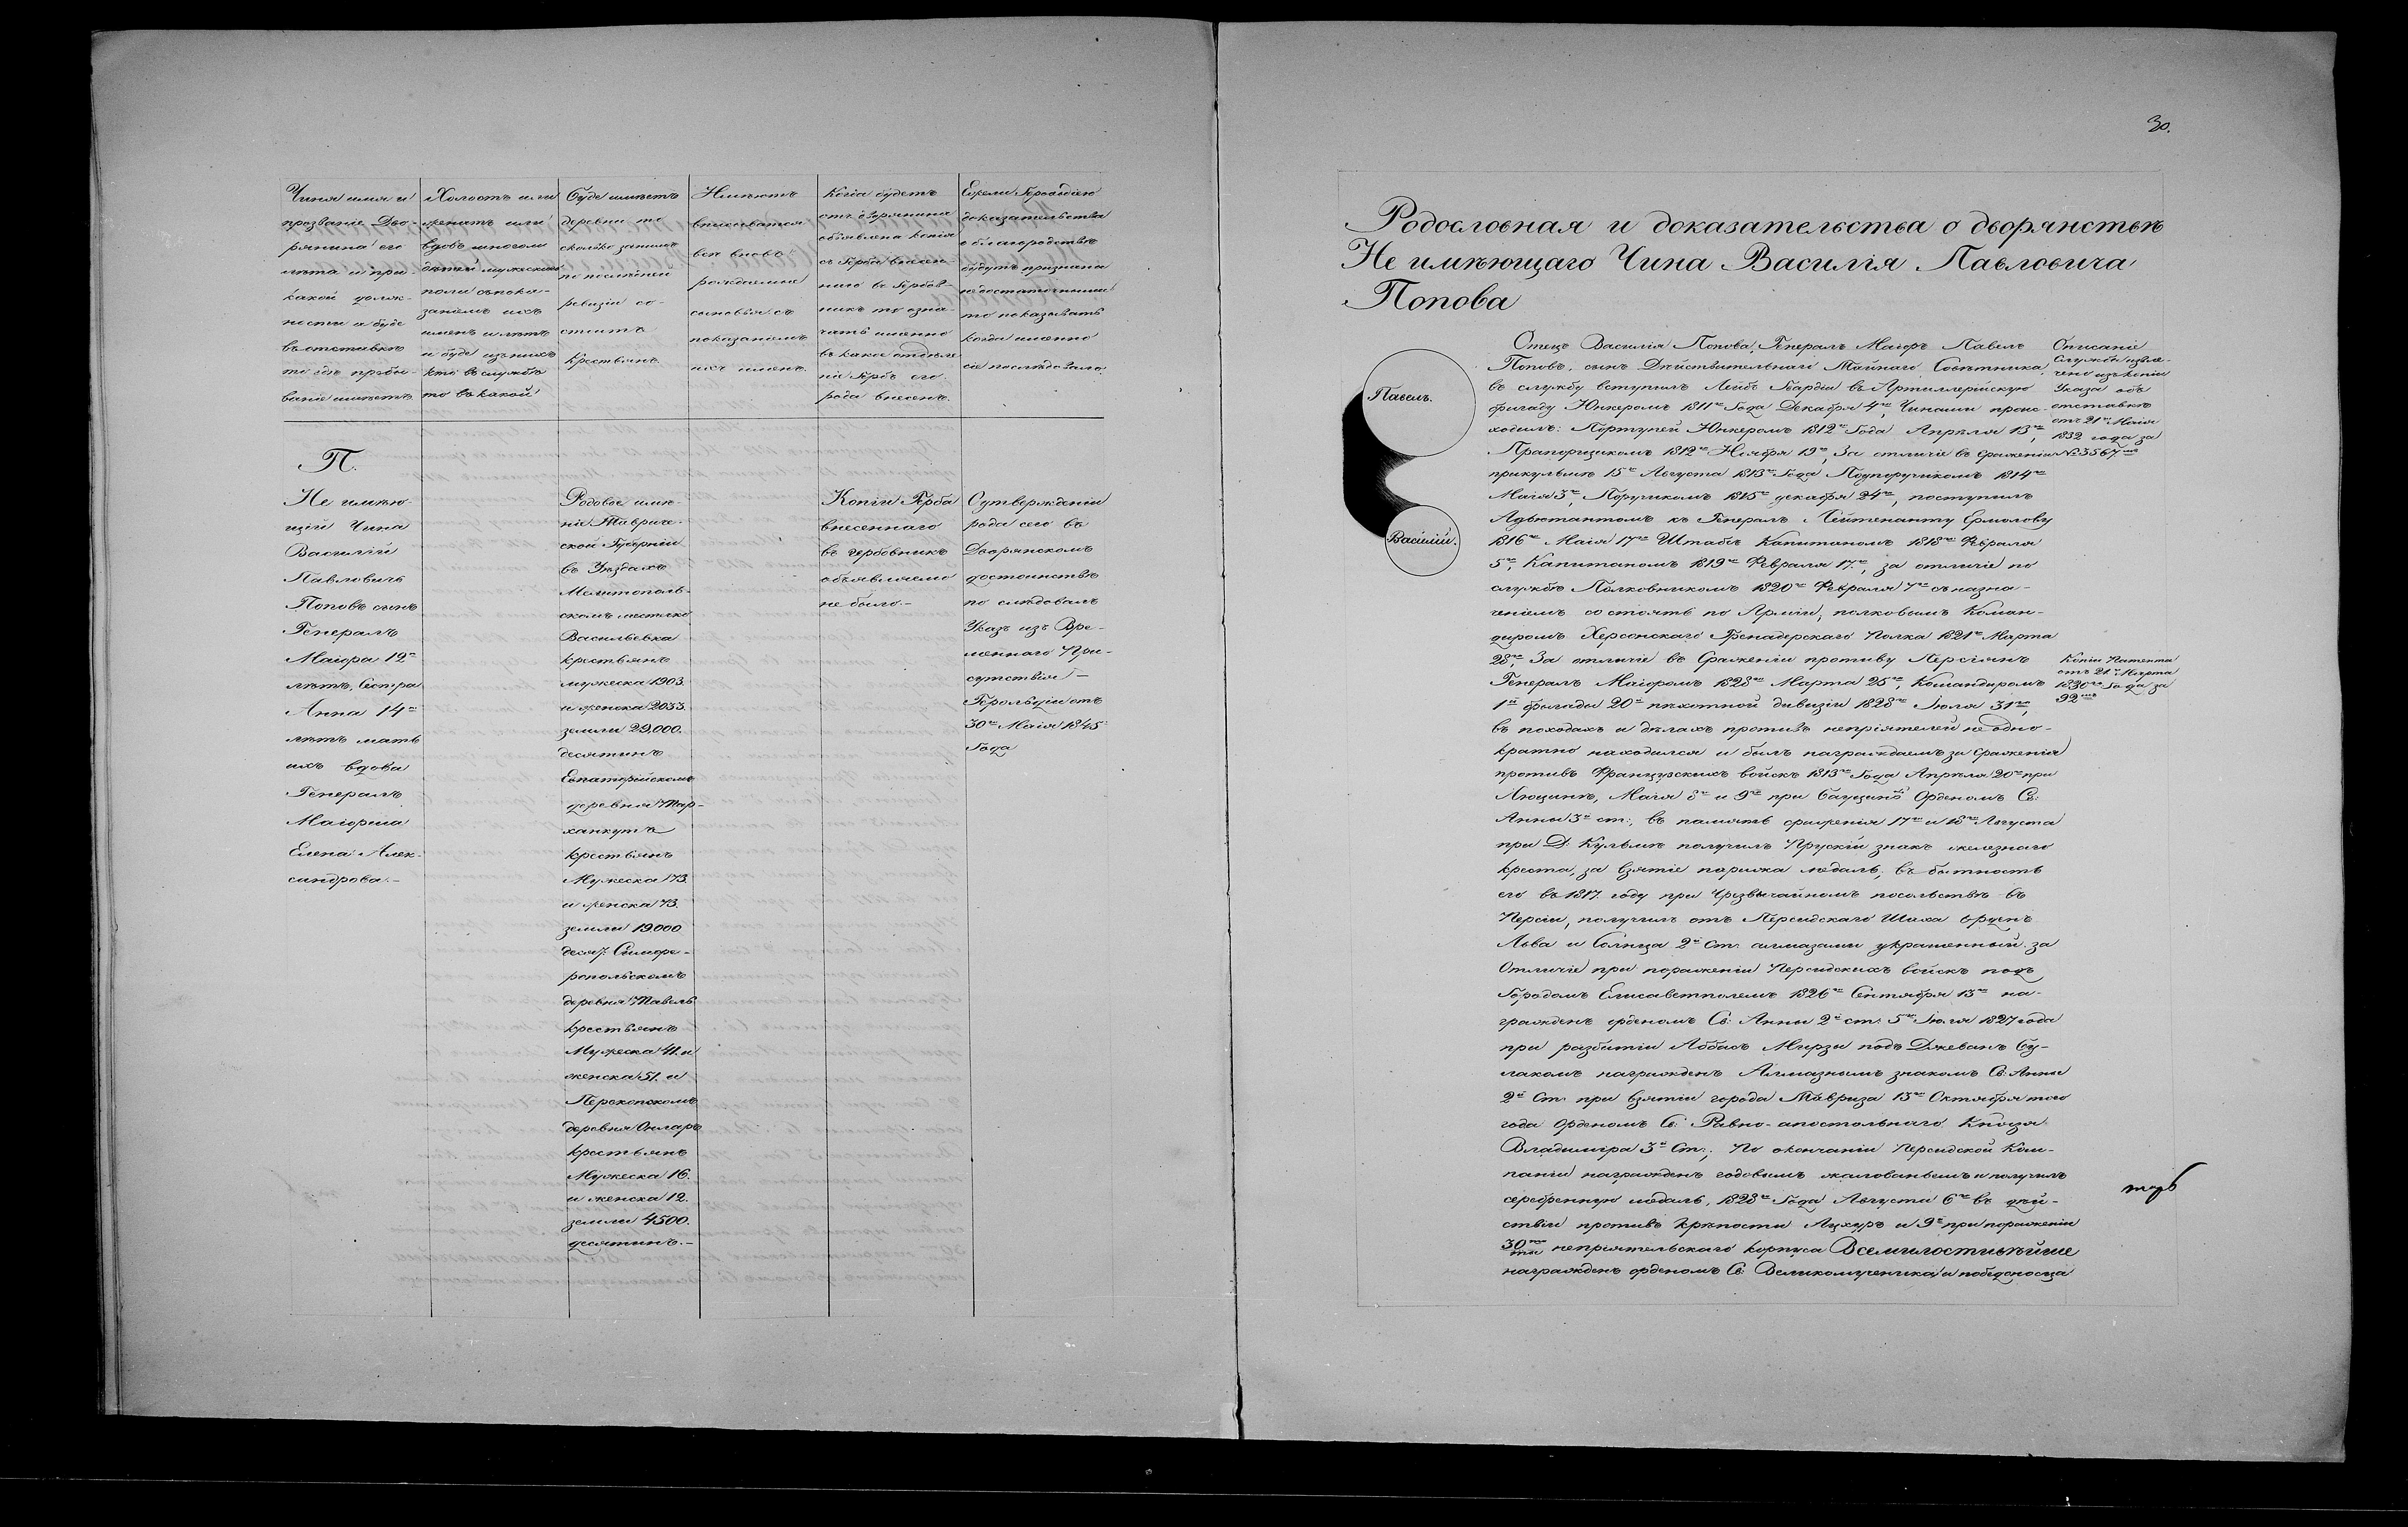 Чинъ имя и
прозваніе Дво-
рянина его
лѣта и при
какой долж-
ности и буде
въ отставкѣ
то гдѣ пребы-
ваніе имѣетъ
Холостъ или
женатъ или
вдовъ многоли
дѣтей мужеска
пола съ пока-
заніемъ ихъ
именъ и лѣтъ
и буде изъ нихъ
кто въ службѣ
то въ какой
Буде имѣетъ
деревни то
сколько за нимъ
по послѣдней
ревизіи со-
стоитъ
крестьянъ.
Имѣютъ
вписыватся
всѣ вновь
рождаемыя
сыновья съ
показаніемъ
ихъ именъ.
Когда будетъ
отъ дворянина
объявлена копія
съ Герба внесен-
наго въ Гербов-
никъ то озна-
чать именно
въ какое отдѣле
ніе Гербъ его
рода внесенъ.
Ежели Герольдіею
доказательства
о благородствѣ
будутъ признаны
недостаточными
то показывать
когда именно
сіе послѣдовало
П.
Не имѣю-
щій Чина
Василій
Павловичъ
Поповъ сынъ
Генералъ
Маіора 12
лѣтъ, Сестра
Анна 14
лѣтъ мать
ихъ вдова
Генералъ
Маіорша
Елена Алек-
сандрова.-
Родовое имѣ-
ніе Тавриче-
ской Губерніи
въ Уѣздахъ
Мелитополь-
скомъ местечко
Васильевка
крестьянъ
мужеска 1903.
и женска 2033
земли 29,000.
десятинъ
Евпаторійскомъ
деревня Тар-
ханкутъ
крестьянъ
Мужеска 73.
и женска 73.
земли 19000
десят: Симфе-
ропольскомъ
деревня Тавель
крестьянъ
Мужеска 41. и
женска 51. и
Перекопскомъ
деревня Онларъ
крестьянъ
Мужеска 16.
и женска 12.
земли 4500.
десятинъ.-
Копіи Герба
внесеннаго
въ гербовникъ
объявляемо
не было.-
О утвержденіи
рода сего въ
Дворянскомъ
достоинствѣ
послѣдовалъ
Указъ изъ Вре-
меннаго При-
сутствія
Герольдіи отъ
30го Маія 1845
Года
30.
Родословная и доказательства о дворянствѣ
Не имѣющаго Чина Василія Павловича
Попова
Павелъ.
Василій.
Отецъ Василія Попова, Генералъ Маіоръ Павелъ
Поповъ, сынъ Дѣйствительнаго Тайнаго Совѣтника,
въ службу вступилъ Лейбъ Гвардіи въ Артиллерійскую
бригаду Юнкеромъ 1811го Года Декабря 4го, Чинами проис-
ходилъ: Портупей Юнкеромъ 1812го Года Апрѣля 13го,
Прапорщикомъ 1812го Ноября 19го, За отличіе въ сраженіи
прикульмѣ 15го Августа 1813го Года Подпоручикомъ 1814го
Маія 3го, Поручикомъ 1815го декабря 24го, поступилъ
Адъютантомъ къ Генералъ Лейтенанту Ермолову
1816го Маія 17го Штабсъ Капитаномъ 1818го Февраля
5го, Капитаномъ 1819го Февраля 17го, за отличіе по
службѣ Полковникомъ 1820го Февраля 7го съ назна-
ченіемъ состоять по Арміи, полковымъ Коман-
диромъ Херсонскаго Гренадерскаго Полка 1821го Марта
28го, За отличіе въ Сраженіи противу Персіянъ
Генералъ Маіоромъ 1828го Марта 25го, Командиромъ
1й бригады 20й пѣхотной дивизіи 1828го Іюля 31го,
въ походахъ и дѣлахъ противъ непріятелей неодно-
кратно находился и былъ награждаемъ за сраженія
противъ Французскихъ войскъ 1813го Года Апрѣля 20го при
Люценѣ, Маія 8го и 9го при Бауценѣ Орденомъ Св:
Анны 3й ст:, въ память сраженія 17го и 18го Августа
при Д. Кульмѣ получилъ Прускій знакъ железнаго
креста, за взятіе парижа медаль, въ бытность
его въ 1817. году при Чрезвычайномъ посольствѣ въ
Персіи, получилъ отъ Персидскаго Шаха орденъ
Льва и Солнца 2й Ст: алмазами украшенный за
Отличіе при пораженіи Персидскихъ войскъ подъ
Городомъ Елисаветполемъ 1826го Сентября 13го на-
гражденъ орденомъ Св: Анны 2й ст: 5го Іюля 1827 года
при разбитіи Аббасъ Мирзы подъ Дживанъ Бу-
лакомъ награжденъ Алмазнымъ знакомъ Св: Анны
2й Ст: при взятіи города Тавриза 13го Октября того
года Орденомъ Св: Равно-апостольнаго Князя
Владиміра 3й Ст:, По окончаніи Персидской Кам-
паніи награжденъ годовымъ жалованьемъ и получилъ
серебренную медаль, 1828го Года Августа 6го въ дѣй-
ствіи противъ крѣпости Ацхуръ и 9го при пораженіи
30ти непріятельскаго корпуса Всемилостивѣйше
награжденъ орденомъ Св: Великомученика и победоносца
Описаніе
Службы извле-
чено изъ копіи
Указа объ
отставкѣ
отъ 21го Маія
1832 года за
№ 3567мъ
Копіи Патента
отъ 21го Марта
1830го Года за
92мъ